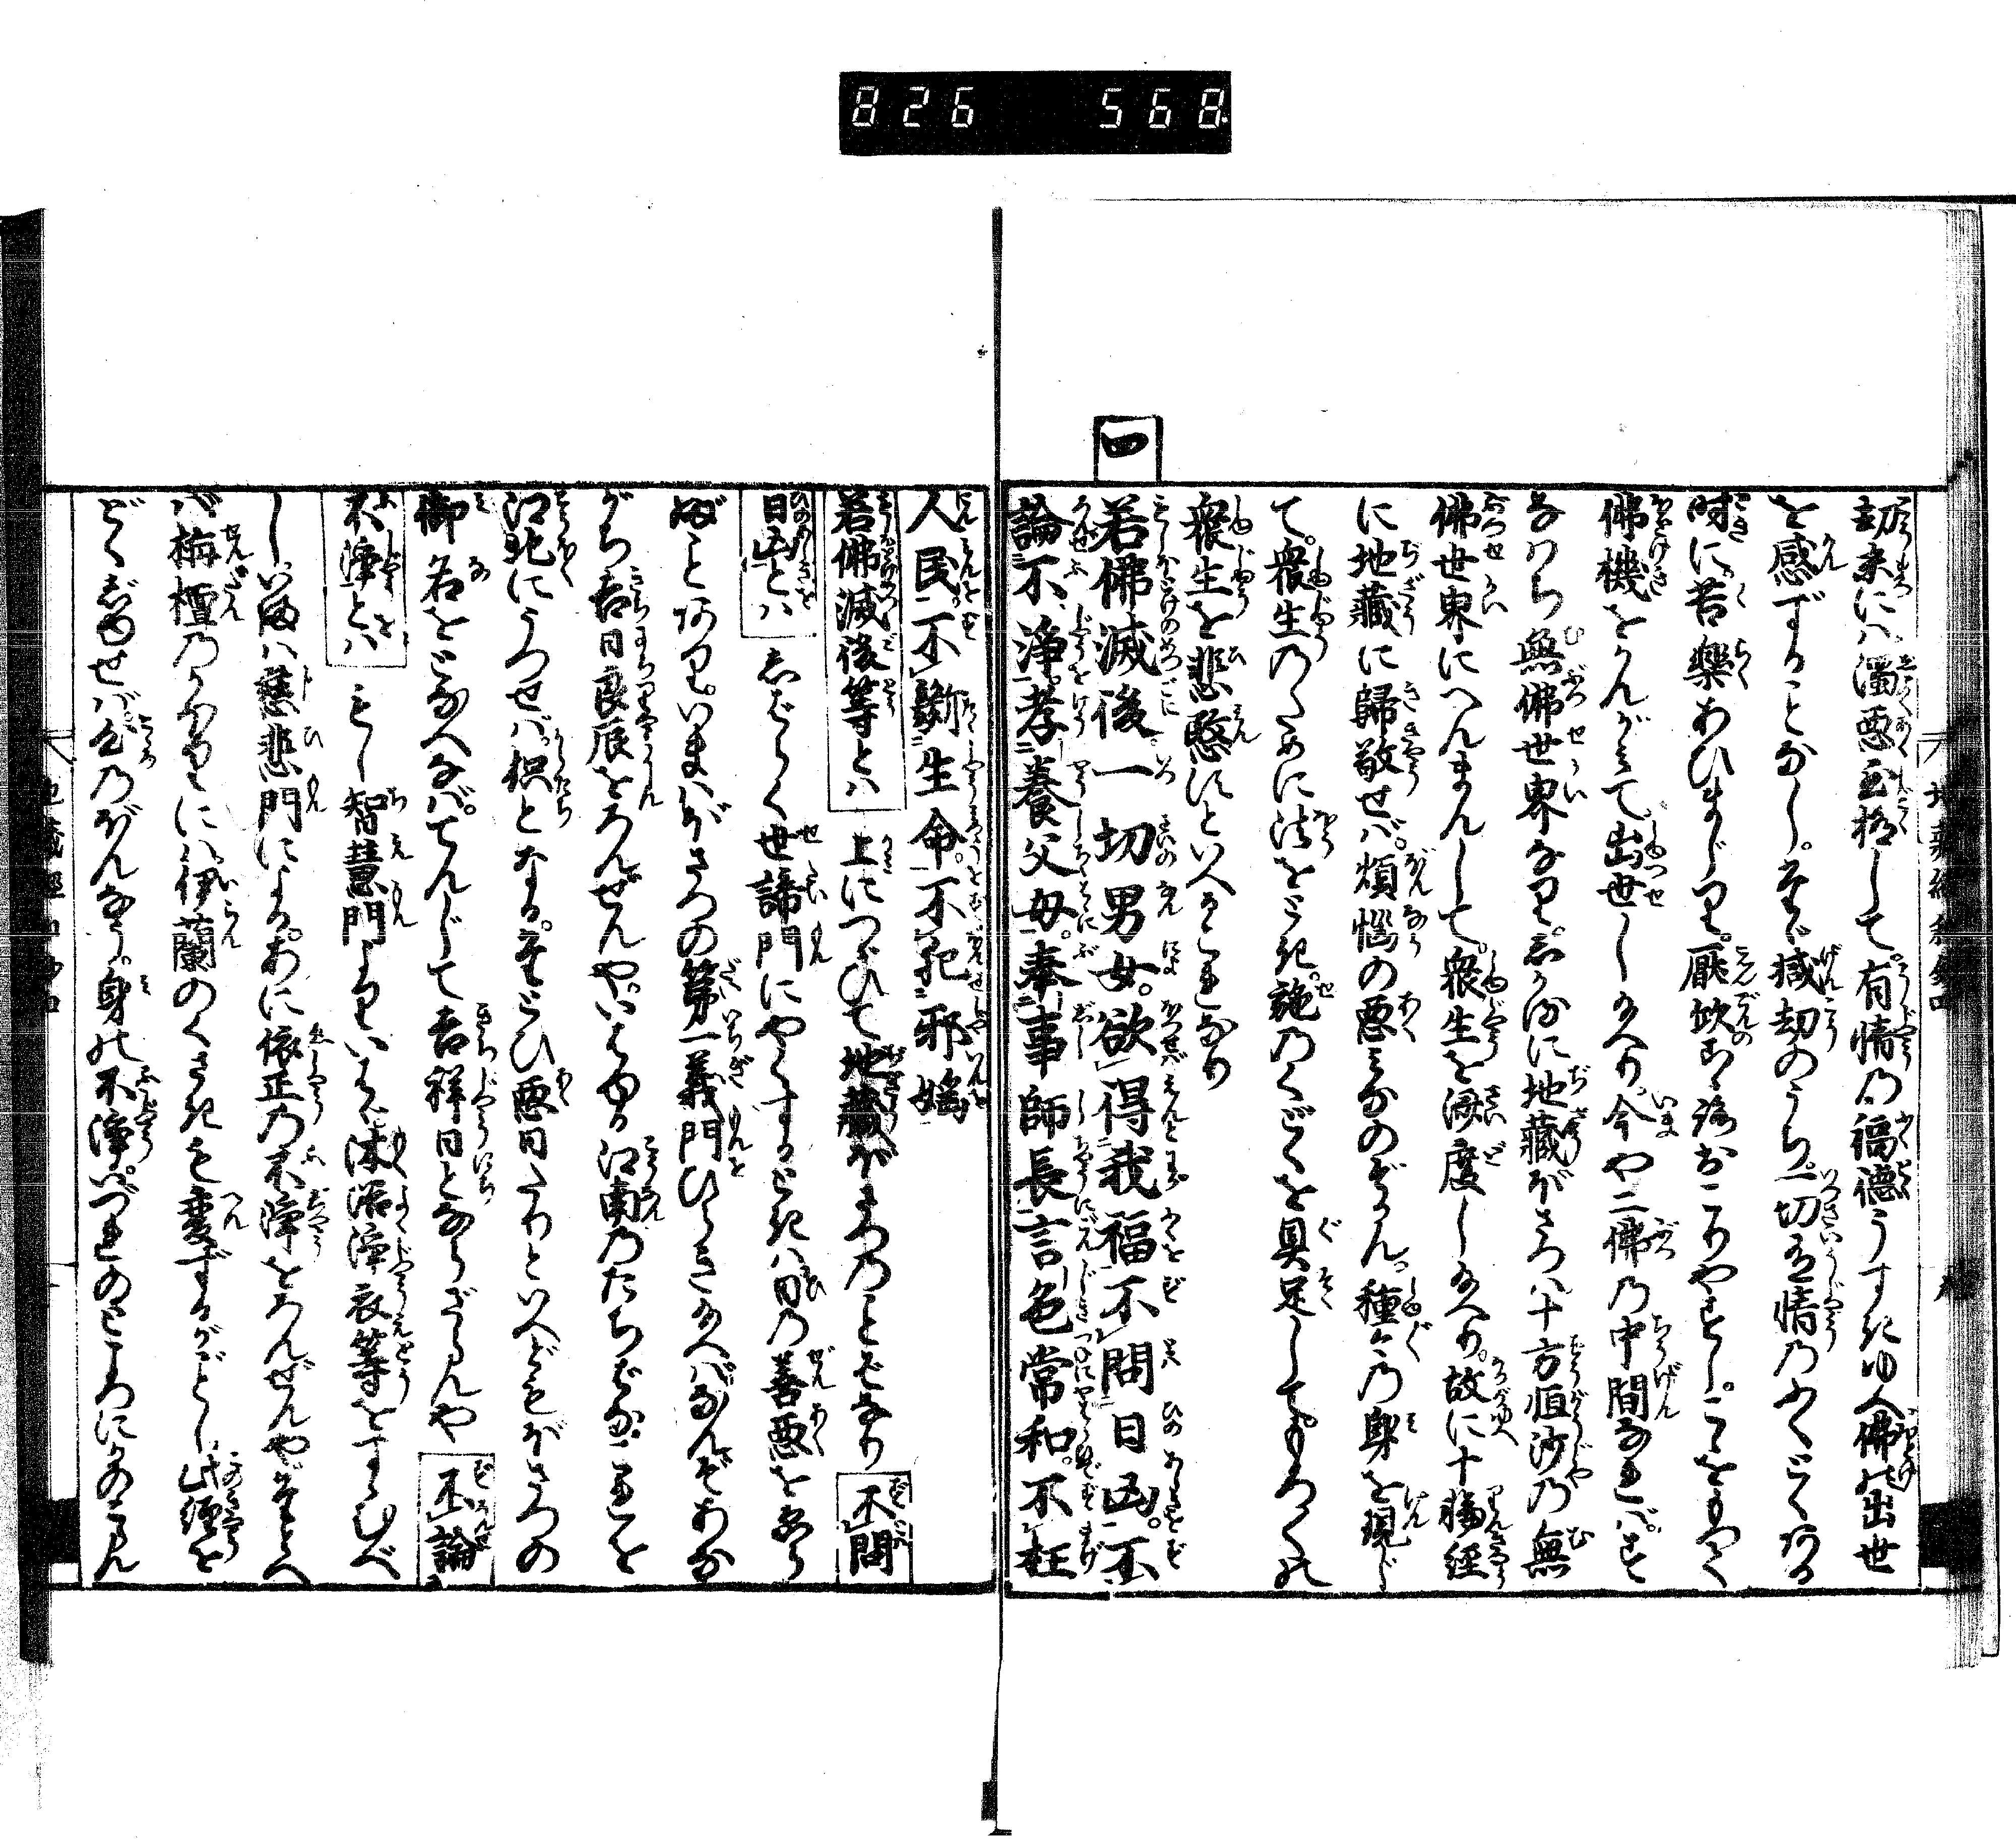 826 568
劫末にハ濁悪至極して。有情の福徳うすきゆへ佛の出世
を感ずることなし。そも〳〵減劫のうち。一切有情のふくどくある
時に。苦楽あひまじり。厭欣の
佛機をかんがミて出世し給へり。今や二佛の中間なれバ。
すなハち無佛世界なり。しかるに地藏ぼさつハ十方恒沙の無
佛世界にへんまんして。衆生を済度し給へり。故に十輪経
に地藏に歸敬せバ。煩惱の悪ミなのぞかん。種〻の身を現じ
て。衆生のために法をとき。施のくどくを具足して。もろ〳〵の
衆生を悲愍すといへるこれなり
四
若佛滅後。一切男女。欲得我福不問日凶。不
論不淨。孝養父母。奉事師長。言色常和。不枉
人民。不斷生命。不犯邪婬
若佛滅後等とハ 上につゞひて地藏ぼさつのことばなり 不問
日凶とハ しバらく世諦門にやくするときハ日の善悪をえら
ぶことあり。いまぼさつの第一義門ひらき給へバなんぞあな
がち吉日良辰をろんぜんや。いはゆる江南のたちばなこれを
江北にうつせバ。枳となる。たとひ悪日たりといへどもぼさつの
御名をとなへなバ。てんじて吉祥日とならざらんや 不論
不淨とハ もし智慧門よりいはゞ沐浴淨衣等をすゝむべ
し。いまハ慈悲門による。あに依正の不淨をろんぜんや。たとへ
バ栴檀のかほりにハ伊蘭のくさきも変ずるがごとし。此經を
どくじゆせバ心のぼんなう。身の不淨。いづれのところにかのこらん